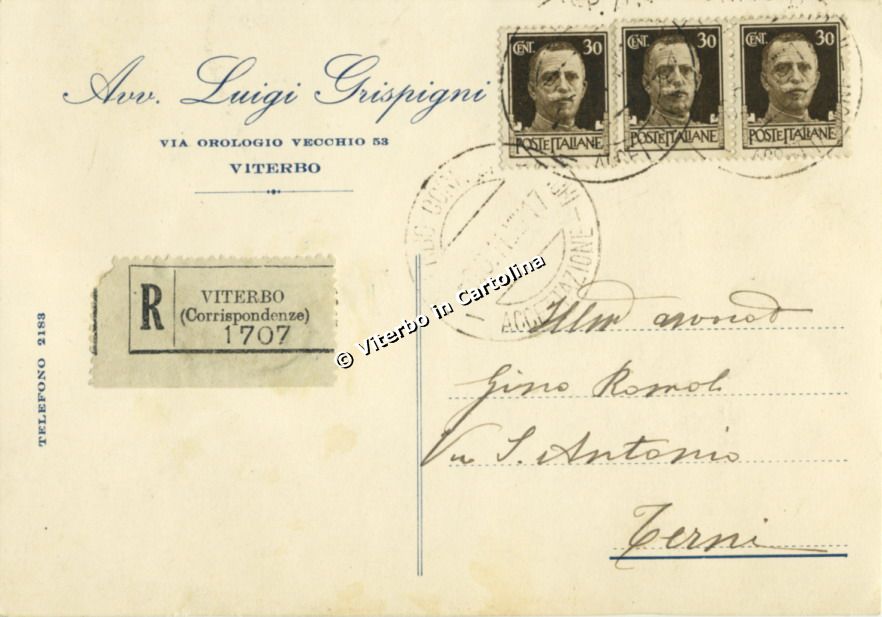 Avv. Luigi Grispigni
VIA OROLOGIO VECCHIO 53
VITERBO
CENT. 30
POSTE ITALIANE
CENT. 30
POSTE ITALIANE
CENT. 30
POSTE ITALIANE
ACCETTAZIONE
R
VITERBO
(Corrispondenze)
1707
TELEFONO 2183
© Viterbo in Cartolina
Gino Romoli
Via S. Antonio
Terni